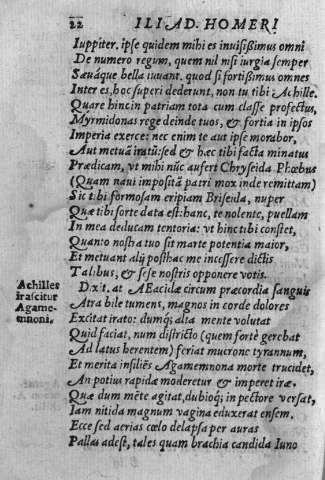 22 ILIAD. HOMERI
Iuppiter. ipse quidem mihi es inuisißimus omni
De numero regum, quem nil nisi iurgia semper
Sæuáque bella iuuant. quod si fortißimus omnes
Inter es, hoc superi dederunt, non tu tibi Achille.
Quare hinc in patriam tota cum classe profectus,
Myrmidonas rege deinde tuos, & fortia in ipsos
Imperia exerce: nec enim te aut ipse morabor,
Aut metuã iratũ: sed & hæc tibi facta minatus
Prædicam, vt mihi nũc aufert Chryseida Phœbus
(Quam naui impositã patri mox inde remittam)
Sic tibi formosam eripiam Briseida, nuper
Quæ tibi sorte data est: hanc, te nolente, puellam
In mea deducam tentoria: vt hinc tibi constet,
Quanto nostra tuo sit marte potentia maior,
Et metuant alij posthac me incessere dictis
Talibus, & sese nostris opponere votis.
Achilles
irascitur
Agame-
mnoni.
Dixit. at AEacidæ circum præcordia sanguis
Atra bile tumens, magnos in corde dolores
Excitat irato: dumq́; alta mente volutat
Quid faciat, num districto (quem fortè gerebat
Ad latus hærentem) feriat mucrone tyrannum,
Et merita insiliẽs Agamemnona morte trucidet,
An potius rapidæ moderetur & imperet iræ.
Quæ dum mẽte agitat, dubioq́; in pectore versat,
Iam nitida magnum vagina eduxerat ensem.
Ecce sed aerias cœlo delapsa per auras
Pallas adest, tales quam brachia candida Iuno